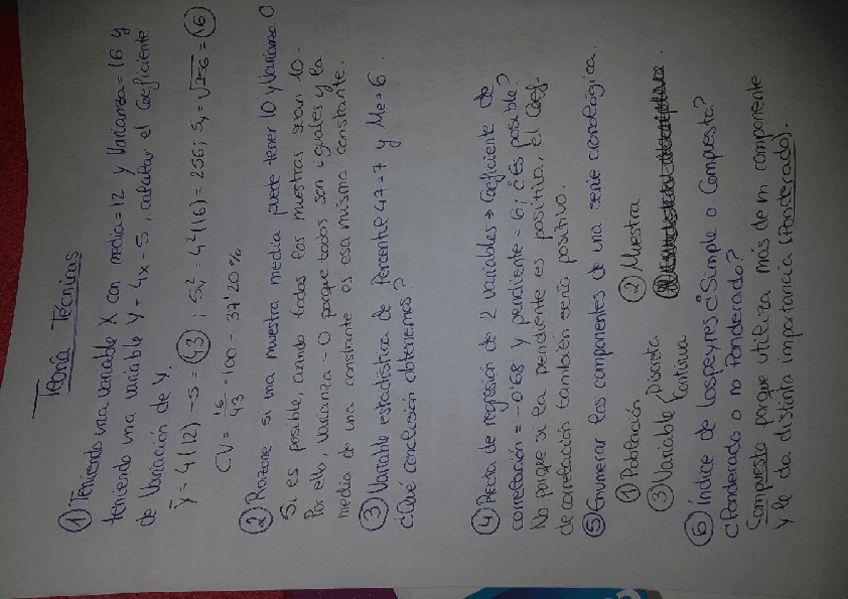 Teoría Técnicas
① Teniendo una variable X con media=12 y Varianza=16 y
teniendo una variable Y=4x-5, calcular el Coeficiente
de Variación de Y.
ȳ=4(12)-5=43; Sy²=4²(16)=256; Sy=√256=16
CV=16/43·100=37'20%
② Razone si una muestra media puede tener 10 y Varianza 0
Si es posible, cuando todas las muestras sean 10.
Por ello, Varianza=0 porque todos son iguales y la
media de una constante es esa misma constante.
③ Variable estadística de Percentil 47=7 y Me=6.
¿Qué conclusión obtenemos?
④ Recta de regresión de 2 variables → Coeficiente de
correlación=-0'68 y pendiente=6; ¿És posible?
No porque si la pendiente es positiva, el Coef.
de correlación también sería positivo.
⑤ Enumerar los componentes de una serie cronológica.
① Población ② Muestra
③ Variable Discreta
Continua
⑥ Índice de Laspeyres ¿Simple o Compuesta?
¿Ponderado o no Ponderado?
Compuesta porque utiliza más de un componente
y le da distinta importancia (Ponderado).